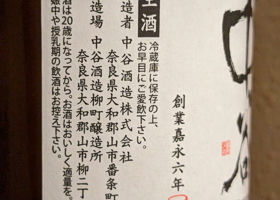 創業嘉永六年
生酒
冷蔵庫に保存の上、
お早目にご愛飲下さい。
造者 中谷酒造株式会社
奈良県大和郡山市番条町
造場 中谷酒造柳町醸造所
奈良県大和郡山市柳二丁
酒は20歳になってから。お酒はおいしく適量を。
娠中や授乳期の飲酒はお控え下さい。